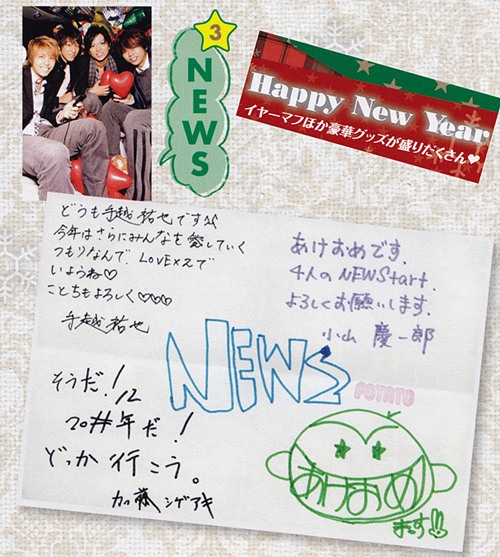 3
NEWS
Happy New Year
イヤーマフほか豪華グッズが盛りだくさん♥
どうも手越祐也です☆
今年はさらにみんなを愛していく
つもりなんで、LOVE×2で
いようね♡
ことちもよろしく♡♡♡
手越祐也
あけおめです.
4人のNEWStart.
よろしくお願いします.
小山 慶一郎
NEWS
POTATO
そうだ!
12
20#年だ!
どっか行こう。
加藤シゲアキ
あけおめ
まーす!!